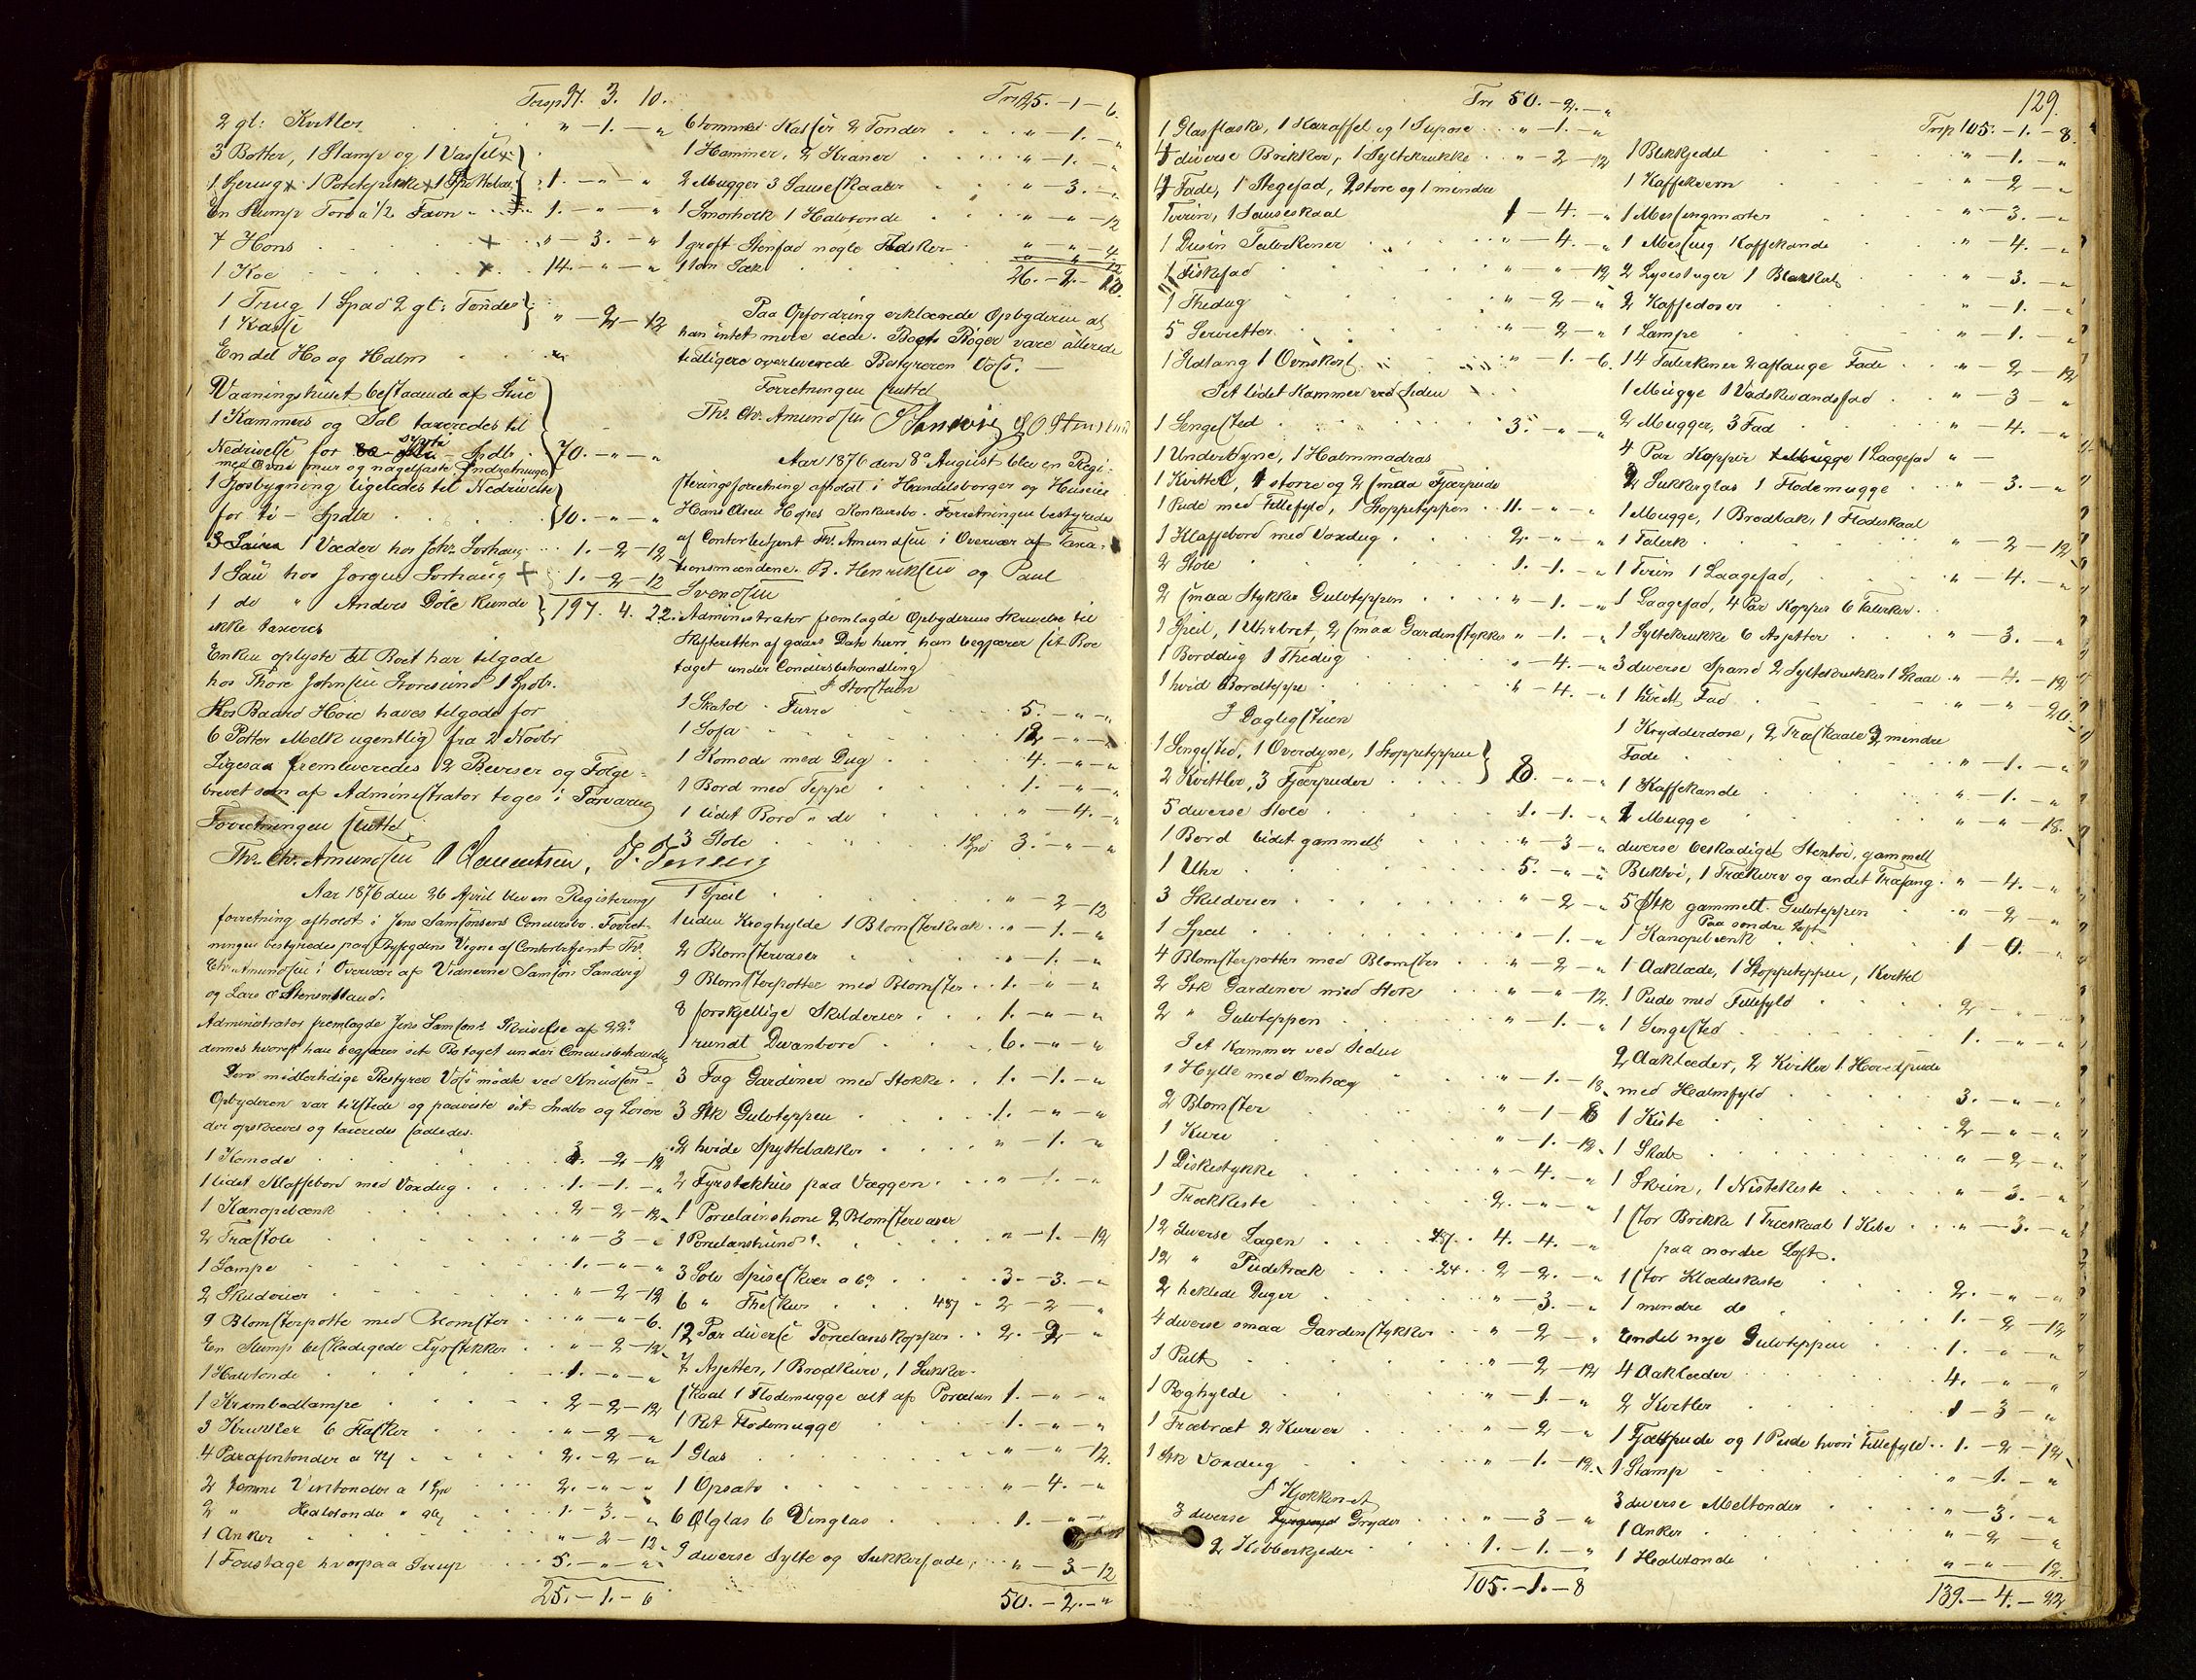 Trsp 91. 3. 10.
2 gl: Kvitler " - 1. - "
3 Bøtter, 1 Stamp og 1 Vassel
1 1 Potetgrikke 1
En Slump Torv a 1/2 Favn 1. - " - "
7 Høns " - 3. - "
1 Koe 14. - " - "
1 Trug 1 Spad 2 gl: Tønder
1 Kasse " - 2 - 12
En del Hø og Halm
Vaaningshuset bestaaende af Stue
1 Kammers og Sal taxeredes til
Nedrivelse for sytti Spdlr 70. - " - "
med Ovne mur og nagelfaste Indretninger
1 Løsbygning ligeledes til Nedrivelse
for ti - Spdlr 10. - " - "
1 Væder hos Johs. Sørhaug 1. - 2 - 12
1 Sau hos Jørgen Sørhaug 1. - 2 - 12
1 do " Anders Døle kunde 197. 4. 22.
ikke taxeres
Enken oplyste at Boet har tilgode
hos Thore Johnsen Storesund 1 Spdlr.
Hos Baard Hoie haves tilgode for
6 Potter Melk ugentlig fra 2 Novbr
Ligesaa fremleveredes 2 Beviser og Følge-
brevet som af Administrator toges i Forvaring
Forretningen sluttet
Ths. Chr. Amundsen O Clementsen, J. Jensen
Aar 1876 den 26 April blev en Registerings
forretning afholdt i Jens Samsonsens Concursbo. Forret-
ningen bestyredes paa Byfogdens Vegne af Contorbetjent Ths.
Chr. Amundsen i Overvær af Vidnerne Samson Sandvig
og Lars O Stensnland.
Administrator fremlagde Jens Samsons Skrivelse af 22de
dennes hvorefter han begjærer sit Bo taget under Concursbehandling
midlertidige Bestyrer Voss mødte ved Knudsen -
Opbyderen var tilstede og paaviste sit Indbo og Løsøre
der opskreves og taxeredes saaledes.
1 Komode 3. - 2 - 12
1 lidet Klaffebord med Voxdug 1. - 1. - "
1 Kanapebænk 2 - 2 - 12
2 Træstole " - 3 - "
1 Lampe 1. - " - "
2 Skilderier " - 2 - 12
9 Blomsterpotte med Blomster " - " - 6.
En Slump beskadigede Fyrstikker " - 2 - 12
1 Halvtønde 1. - " - "
1 Krambodlampe 2 - 2 - 12
3 Krukker 6 Flasker " - 2 - "
4 Parafintønder a 4 2. - 2 - "
2 tomme Vintønder a 1 Spd 2. - " - "
2 " Halvtønder " 1. - 3. - "
1 Anker " - 2 - 12
1 Foustage hvorpaa Sirup 5. - " - "
25. - 1. - 6
Trs 25. - 1 - 6.
6 tomme Kasser 2 Tønder " - 1. - "
1 Hammer, 2 Kraner " - 1. - "
2 Mugger 3 Sauseskaaler " - 3. - "
1 Smørholk 1 Halvtønde " - " - 12
1 groft Stenfad nogle Flasker " - " - 4
1 tom Sæk " - " - 12
26. - 2. - 10.
Paa Opfordring erklærede Opbyderen at
han intet mere eiede. Boets Bøger vare allerede
tidligere overleverede Bestyreren Voss.
Forretningen sluttet
Ths. Chr. Amundsen S Sandvig
Aar 1876 den 8de August blev en Regi-
steringsforretning afholdt i Handelsborger og Huseier
Hans Olsen Hopes Konkursbo. Forretningen bestyredes
af Contorbetjent Ths. Amundsen i Overvær af Taxa-
tionsmændene. B. Henriksen og Paul
Svendsen
Administrator fremlagde Opbyderens Skrivelse til
Skifteretten af gaars Dato hvori han begjærer sit Boe
taget under Concursbehandling
I Storstuen
1 Skatol - Furre 5. - " - "
1 Sofa 12 - " - "
1 Komode med Dug 4. - " - "
1 Bord med Teppe 1. - " - "
1 lidet Bord " do " - 4. - "
3 Stole 1 Spd 3. - " - "
1 Speil " - 2 - 12
1 liden Kroghylde 1 Blomsterkrak " - 1. - "
2 Blomstervaser " - 1. - "
9 Blomsterpotter med Blomster 1. - " - "
8 forskjellige Skilderier 1. - " - "
1 rundt Divanbord 6. - " - "
3 Fag Gardiner med Stokke 1. - 1. - "
3 Stk Gulvteppen 1. - " - "
2 hvide Spyttebakker " - 1. - "
2 Fyrstikhus paa Væggen " - 1. - "
1 Porcelainshøne 2 Blomstervaser
1 Porcelanshund " - 1. - 12
3 Sølv Spiseskeer a 6 3. - 3. - "
6 " Theskeer 2 - 2 - "
12 Par diverse Porcelanskopper 2. - 2 - "
7 Asjetter, 1 Brødkurv, 1 Sukker-
skaal 1 Flødemugge alt af Porcelan 1. - " - "
1 Flødemugge 1. - " - "
1 Glas " - " - 12.
1 Opsats " - 4. - "
6 Ølglas 6 Vinglas 1. - " - "
9 diverse Sylte og Sukkerfade " - 3 - 12
50. - 2. - "
129.
Trs 50. - 2. - "
1 Glasflaske, 1 Karaffel og 1 " - 1. - "
4 diverse Brikker, 1 Syltekrukke " - 2 - 12
4 Fade, 1 Stegefad, 2 store og 1 mindre
Terrin, 1 Sauseskaal 1 - 4. - "
1 Dusin Tallerkener " - 4. - "
1 Fiskefad " - " - 12
1 Thedug " - 2 - "
5 Servietter " - 2 - "
1 Ildtang 1 Ovnskost " - 1. - 6.
I et lidet Kammer ved Siden
1 Sengested 3. - " - "
1 Underdyne, 1 Halmmadras
1 Kvittel, 1 større og 2 smaa Fjærpude
1 Pude med Fillefyld, 1 Stoppeteppen 11. - " - "
1 Klaffebord med Voxdug 2. - " - "
2 Stole 1. - 1. - "
2 smaa Stykker Gulvteppen " - 1. - "
1 Speil, 1 Uhrbret, 2 smaa Gardinstykker " - 1. - "
1 Borddug 1 Thedug " - 4. - "
1 hvid Bordteppe " - 4. - "
I Dagligstuen
1 Sengested, 1 Overdyne, 1 Stoppeteppen
2 Kvittler, 3 Fjærpuder 8. - " - "
5 diverse Stole 1. - 1. - "
1 Bord lidet gammelt " - 3 - "
1 Uhr 5. - " - "
3 Skilderier " - 2 - "
1 Speil " - 1. - "
4 Blomsterpotter med Blomster " - 2 - "
2 Stk Gardiner med Stok " - " - 12.
2 " Gulvteppen " - 1. - "
I et Kammer ved Siden
1 Hylle med Omhæng " - 1. - 18
2 Blomster " - 1 - 8
1 Kurv " - 1. - 12
1 Diskestykke " - 4. - "
1 Trækkiste 2. - " - "
12 diverse Lagen 4. - 4. - "
12 " Pudetræk 24 2 - 2. - "
2 heklede Duger " - 3. - "
4 diverse smaa Gardinstykker " - 2 - "
1 Pult " - 2 - 12
1 Boghylde " - 1. - "
1 Træbræt 2 Kurver " - 2 - "
1 Stk Voxdug " - 1. - 12
I Kjøkkenet
3 diverse Gryder " - 3 - "
2 Kobberkjedler 1. - 1. - "
105. - 1. - 8
Trsp 105. - 1. - 8.
1 Blikkjedel " - 1. - "
1 Kaffekvern " - 2 - "
1 Messingmorter " - 3. - "
1 Messing Kaffekande " - 4. - "
2 Lysestager 1 " - 3. - "
2 Kaffedoser " - 1. - "
1 Lampe " - 1. - "
14 Tallerkener 2 aflange Fade " - 2 - 12
1 Mugge 1 Vadskevandsfad " - 3 - "
2 Mugger, 3 Fad " - 4. - "
4 Par Kopper 1 Laagefad " -
2 Sukkerglas 1 Flødemugge " - 3. - "
1 Mugge, 1 Brødbak, 1 Flødeskaal
1 Talerk " - 2 - 12
1 Terin 1 Laagefad, " - 4. - "
1 Laagefad, 4 Par Kopper 6 Talerker
1 Syltekrukke 6 Asjetter " - 3. - "
3 diverse Spand 2 Syltekrukker 1 Skaal " - 4. - 12
1 hvidt Fad " - " - 20
1 Krydderdose, 2 Træskaale 2 mindre
Fade " - 1. - "
1 Kaffekande " - 1. - "
1 Mugge " - " - 18.
diverse beskadiget Stentøi, gammelt
Bliktøi, 1 Trækurv og andet Træfang " - 4. - "
5 Stk gammelt Gulvteppen " - 2 - "
Paa søndre Loft
1 Kanapebænk 1 - 0. - "
1 Aaklæde, 1 Stoppeteppen, Kvittel
1 Pude med Fillefyld 2 - " - "
1 Sengested 1. - " - "
2 Aaklæder, 2 Kvitler 1 Hovedpude
med Halmfyld 3. - " - "
1 Kiste 2 - " - "
1 Skab " - 2 - "
1 Skrin, 1 Nistekiste " - 3. - "
1 stor Brikke 1 Træskaal 1 " - 3. - "
paa nordre Loft.
1 stor Klædeskiste 2. - " - "
1 mindre do 1. - 2 - 12
En del nye Gulvteppen 1. - " - "
4 Aaklæder 4. - " - "
2 Kvitler 1 - 3 - "
1 Fjærpude og 1 Pude hvori Fillefyld 1. - 2 - 12
1 Stamp " - 1. - "
3 diverse Meltønder " - 3. - "
1 Anker " - 2 - "
1 Halvtønde " - " - 12.
139. - 4. - 22.